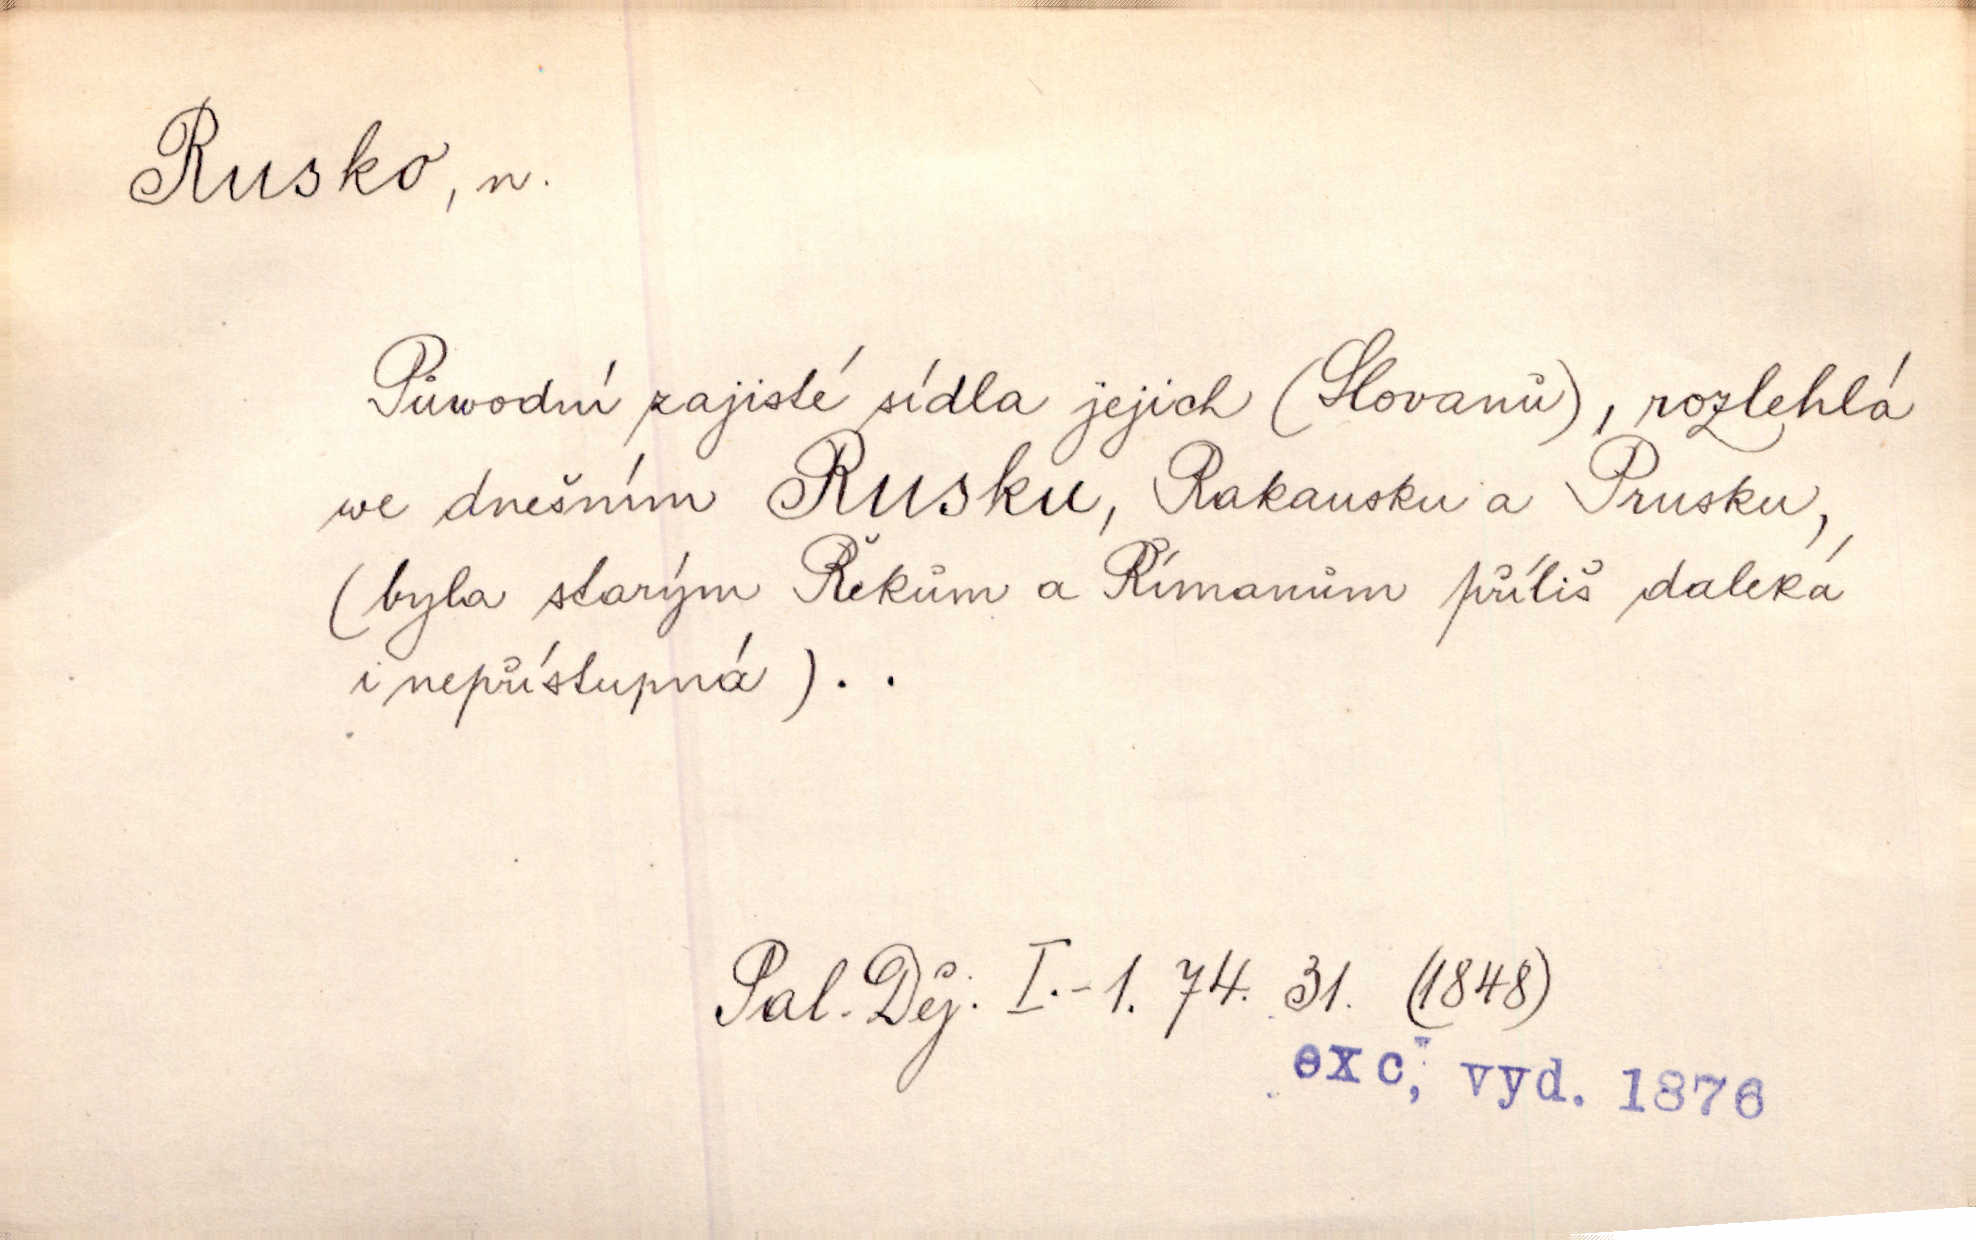 Rusko, n.
Půwodní zajisté sídla jejich (Slovanů), rozlehlá
we dnešním Rusku, Rakausku a Prusku,
(byla starým Řekům a Římanům příliš daleká
i nepřístupná) . .
Pal. Děj. I.-1. 74. 31. (1848)
exc, vyd. 1876